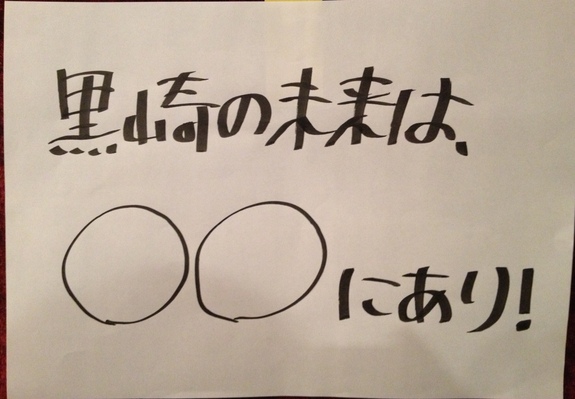 黒崎の未来は、
○○にあり!